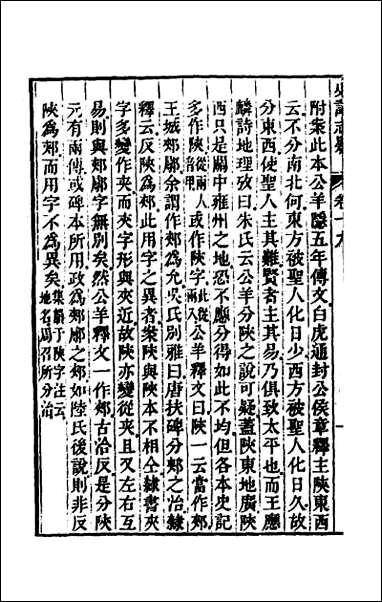 史記志疑 卷十九
附案此本公羊隱五年傳文白虎通封公侯章釋主陝東西
云不分南北何東方被聖人化日少西方被聖人化日久故
分東西使聖人主其難賢者主其易乃俱致太平也而王應
麟詩地理攷曰朱氏云公羊分陝之說可疑蓋陝東地廣陝
西只是關中雍州之地恐不應分得如此不均但各本史記
多作陝從兩人音甲或作陜字此從兩入公羊釋文曰陝一云當作郟
王城郟鄏余謂作郟為允吳氏別雅曰唐扶碑分郟之治隸
釋云反陝為郟此用字之異者案陝與陜本不相仝隸書夾
字多變作夾而夾字形與夾近故陜亦變從夾且又左右互
易則與郟鄏字無別矣然公羊釋文一作郟古洽反是分陝
元有兩傳或碑本所用政為郟鄏之郟如陸氏後說則非反
陝為郟而用字不為異矣集韻于陜字注云地名周召所分治